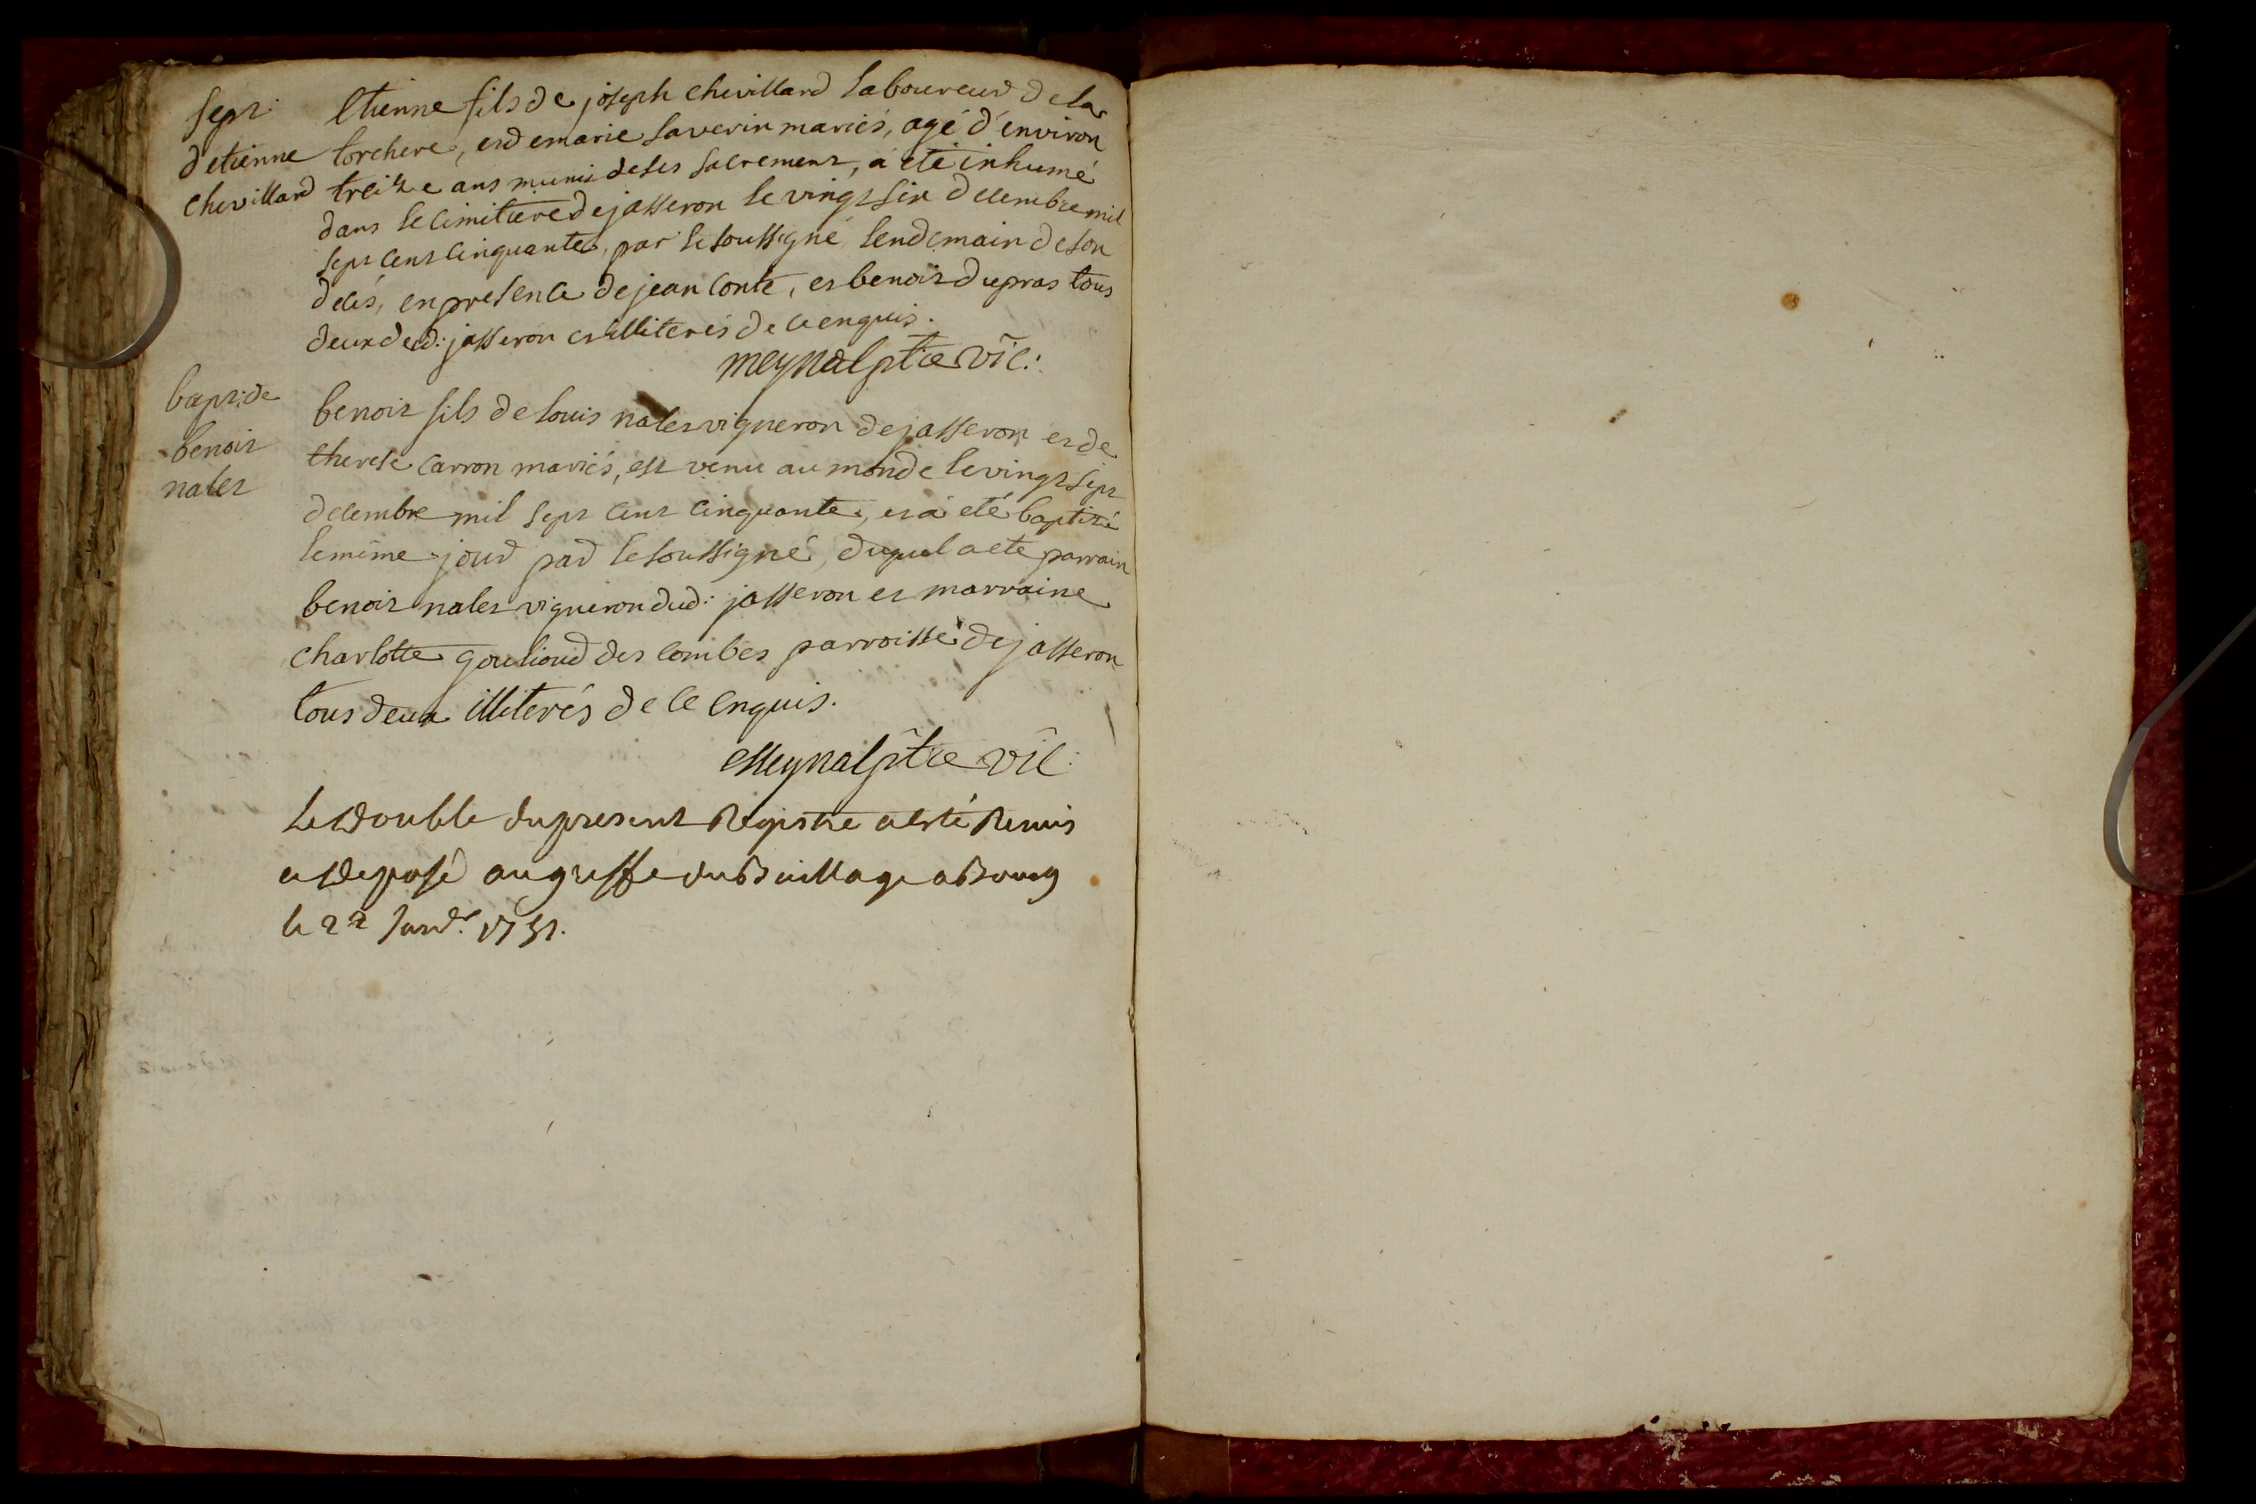 sepr:
d'etienne
chevillard
Etienne fils de joseph chevillard laboureur de la
torchere, et de marie saverin mariés, agé d'environ
treize ans munis de ses sacrement, a eté inhumé
dans le cimitiere de jasseron le vingt six decembre mil
sept cent cinquante, par le soussigné lendemain de son
decés, en presence de jean conte, et benoit dupras tous
deux dud: jasseron et illiterés de ce enquis.
meynal ptre vic:
bapt: de
benoit
nalet
benoit fils de louis nalet vigneron de jasseron et de
therese carron mariés, est venu au monde le vingt sept
decembre mil sept cent cinquante, et a eté baptizé
le même jour par le soussigné, duquel a eté parrain
benoit nalet vigneron dud: jasseron et marraine
charlotte goulioud des combes parroisse de jasseron
tous deux illiterés de ce enquis.
Meynal ptre vic:
Le double du present Registre a esté Remis
et deposé au greffe du Baillage a Bourg
le 22 Janvr. 1751.